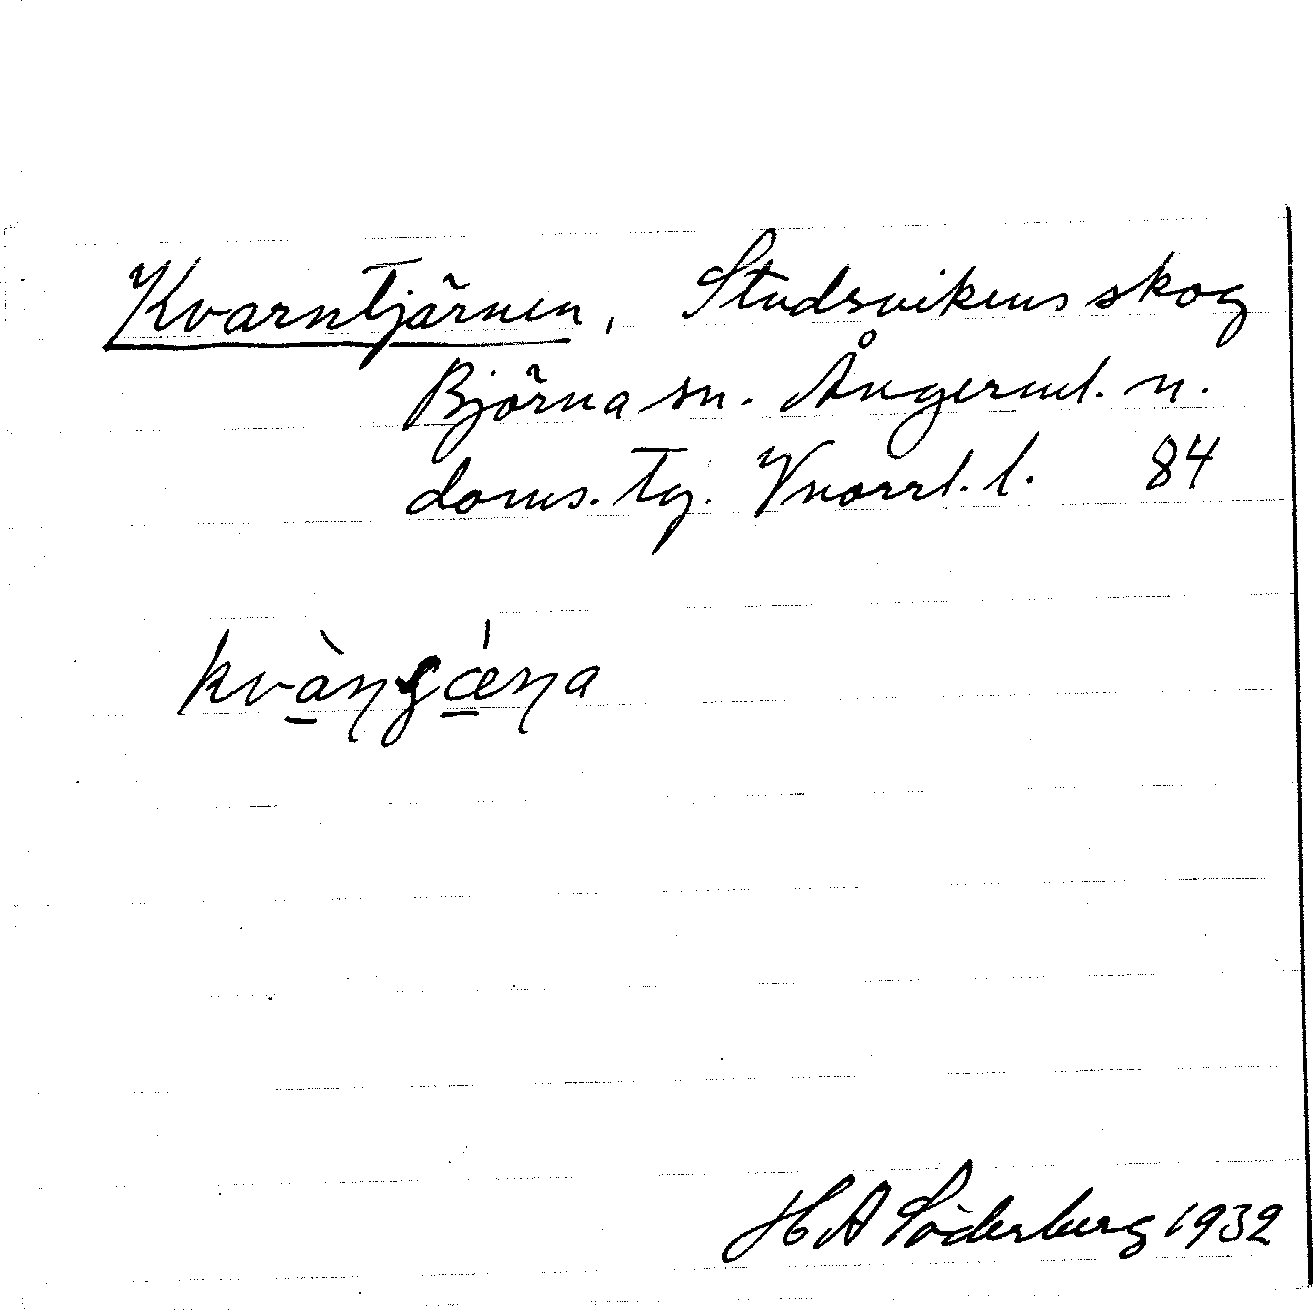 Kvarntjärnen, Studsvikens skog
Björna sn. Ångerml. n.
doms. Tg. Vnorrl. l. 84
H A Söderberg 1932